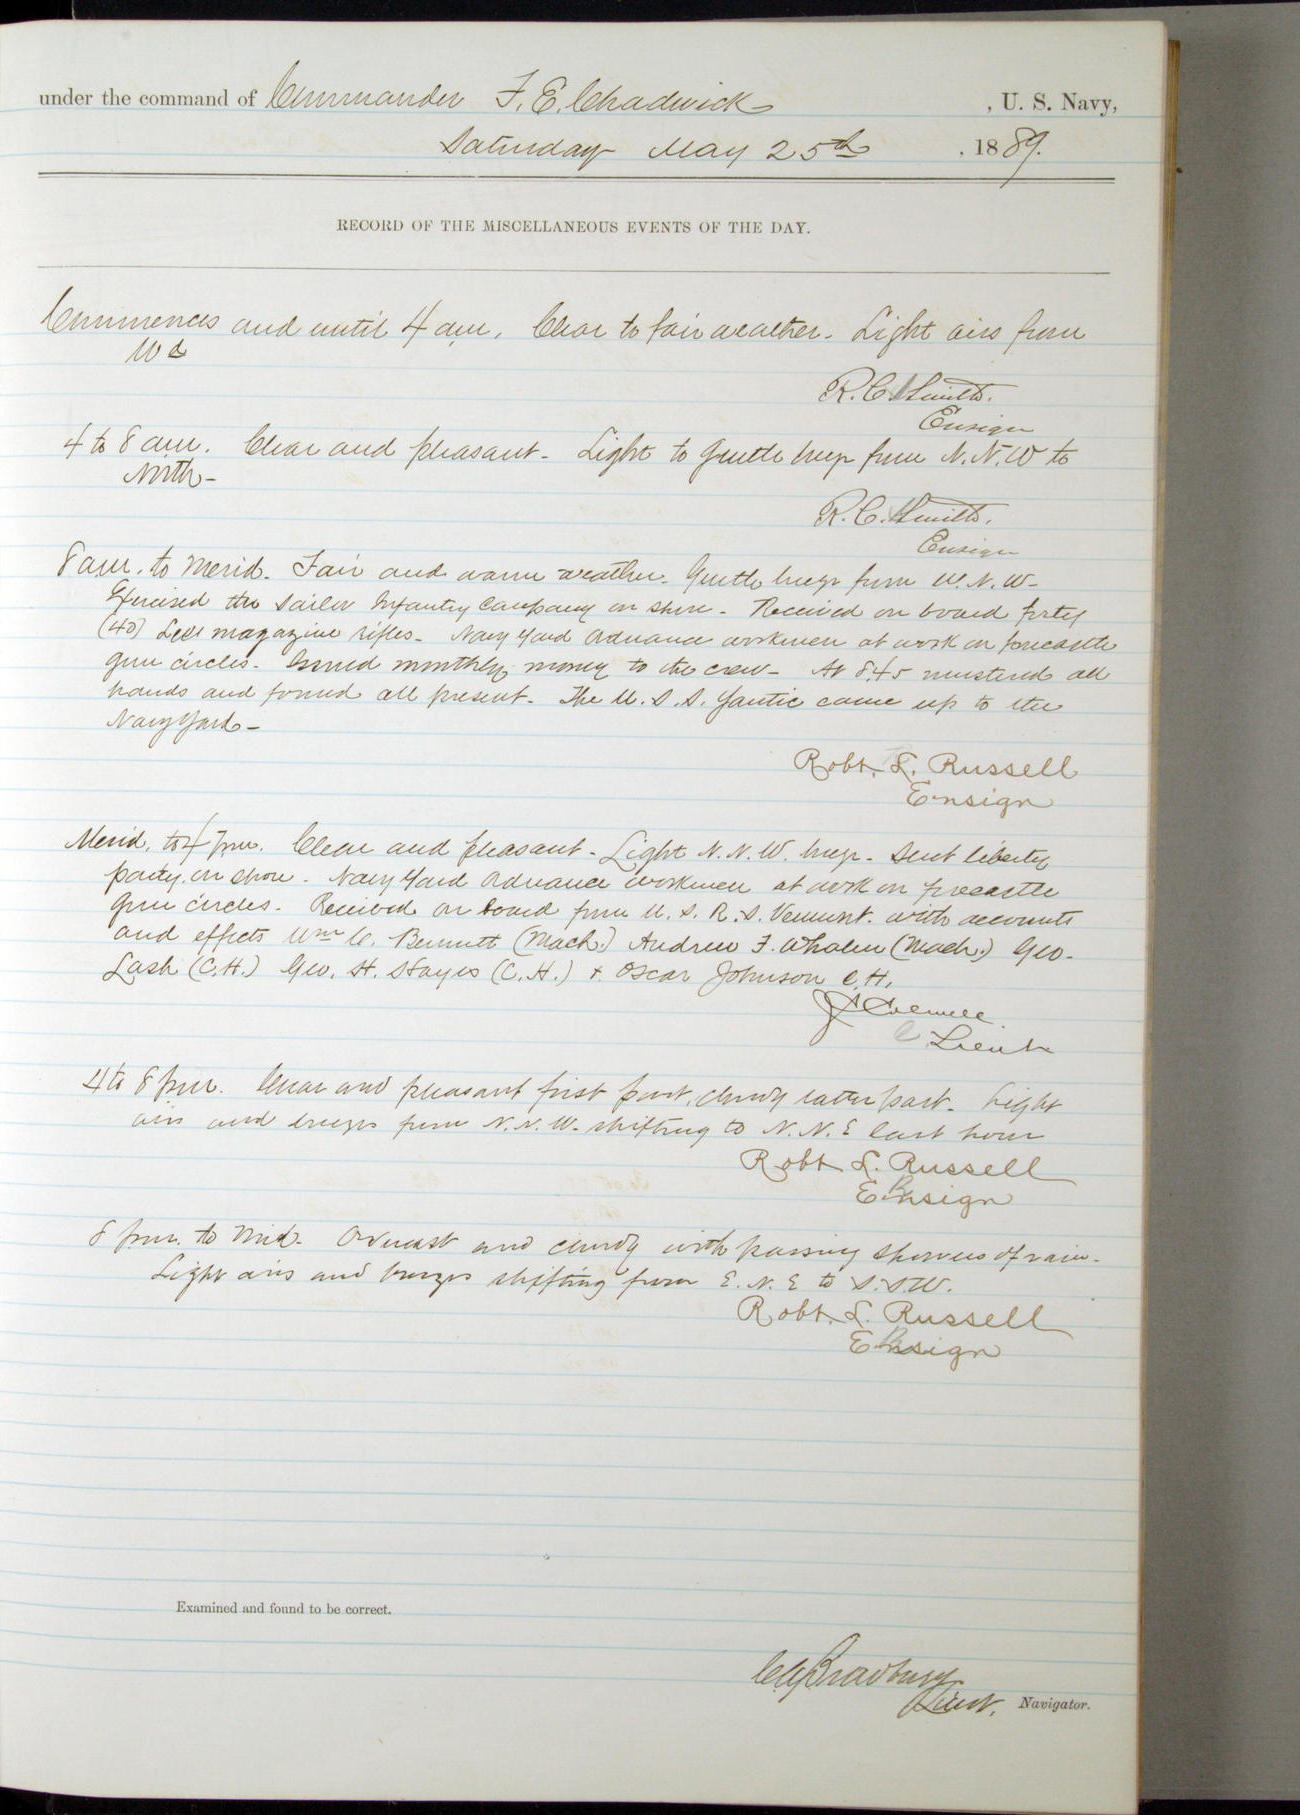 under the command of Commander F. E. Chadwick , U. S. Navy,
Saturday May 25th , 1889.
RECORD OF THE MISCELLANEOUS EVENTS OF THE DAY.
Commences and until 4 am. Clear to fair weather. Light airs from
Wd
R. C. Smith.
Ensign
4 to 8 am. Clear and pleasant. Light to gentle breeze from N. N. W to
North.
R. C. Smith.
Ensign
8 am. to Merid. Fair and warm weather. Gentle breeze from W. N. W.
Exercised the sailor Infantry Company on shore. Received on board forty
(40) Lee magazine rifles. Navy Yard Ordnance workmen at work on forecastle
gun circles. Issued monthly money to the crew. At 8.45 mustered all
hands and found all present. The U. S. S. Yantic came up to the
Navy Yard.
Robt. L. Russell
Ensign
Merid. to 4 pm. Clear and pleasant. Light N. N. W. breeze. Sent liberty
party on shore. Navy Yard Ordnance workmen at work on forecastle
gun circles. Received on board from U. S. R. S. Vermont. with accounts
and effects Wm C. Bennett (Mach.) Andrew F. Whalen (Mach.) Geo.
Lash (C.H.) Geo. H. Hayes (C.H.) & Oscar Johnson C.H.
Lieut
4 to 8 pm. Clear and pleasant first part, cloudy latter part. Light
airs and breezes from N. N. W. shifting to N. N. E last hour
Robt L. Russell
Ensign
8 pm. to Mid. Overcast and cloudy with passing showers of rain.
Light airs and breezes shifting from E. N. E to S. S. W.
Robt. L. Russell
Ensign
Examined and found to be correct.
C G Bradbury
Lieut. Navigator.